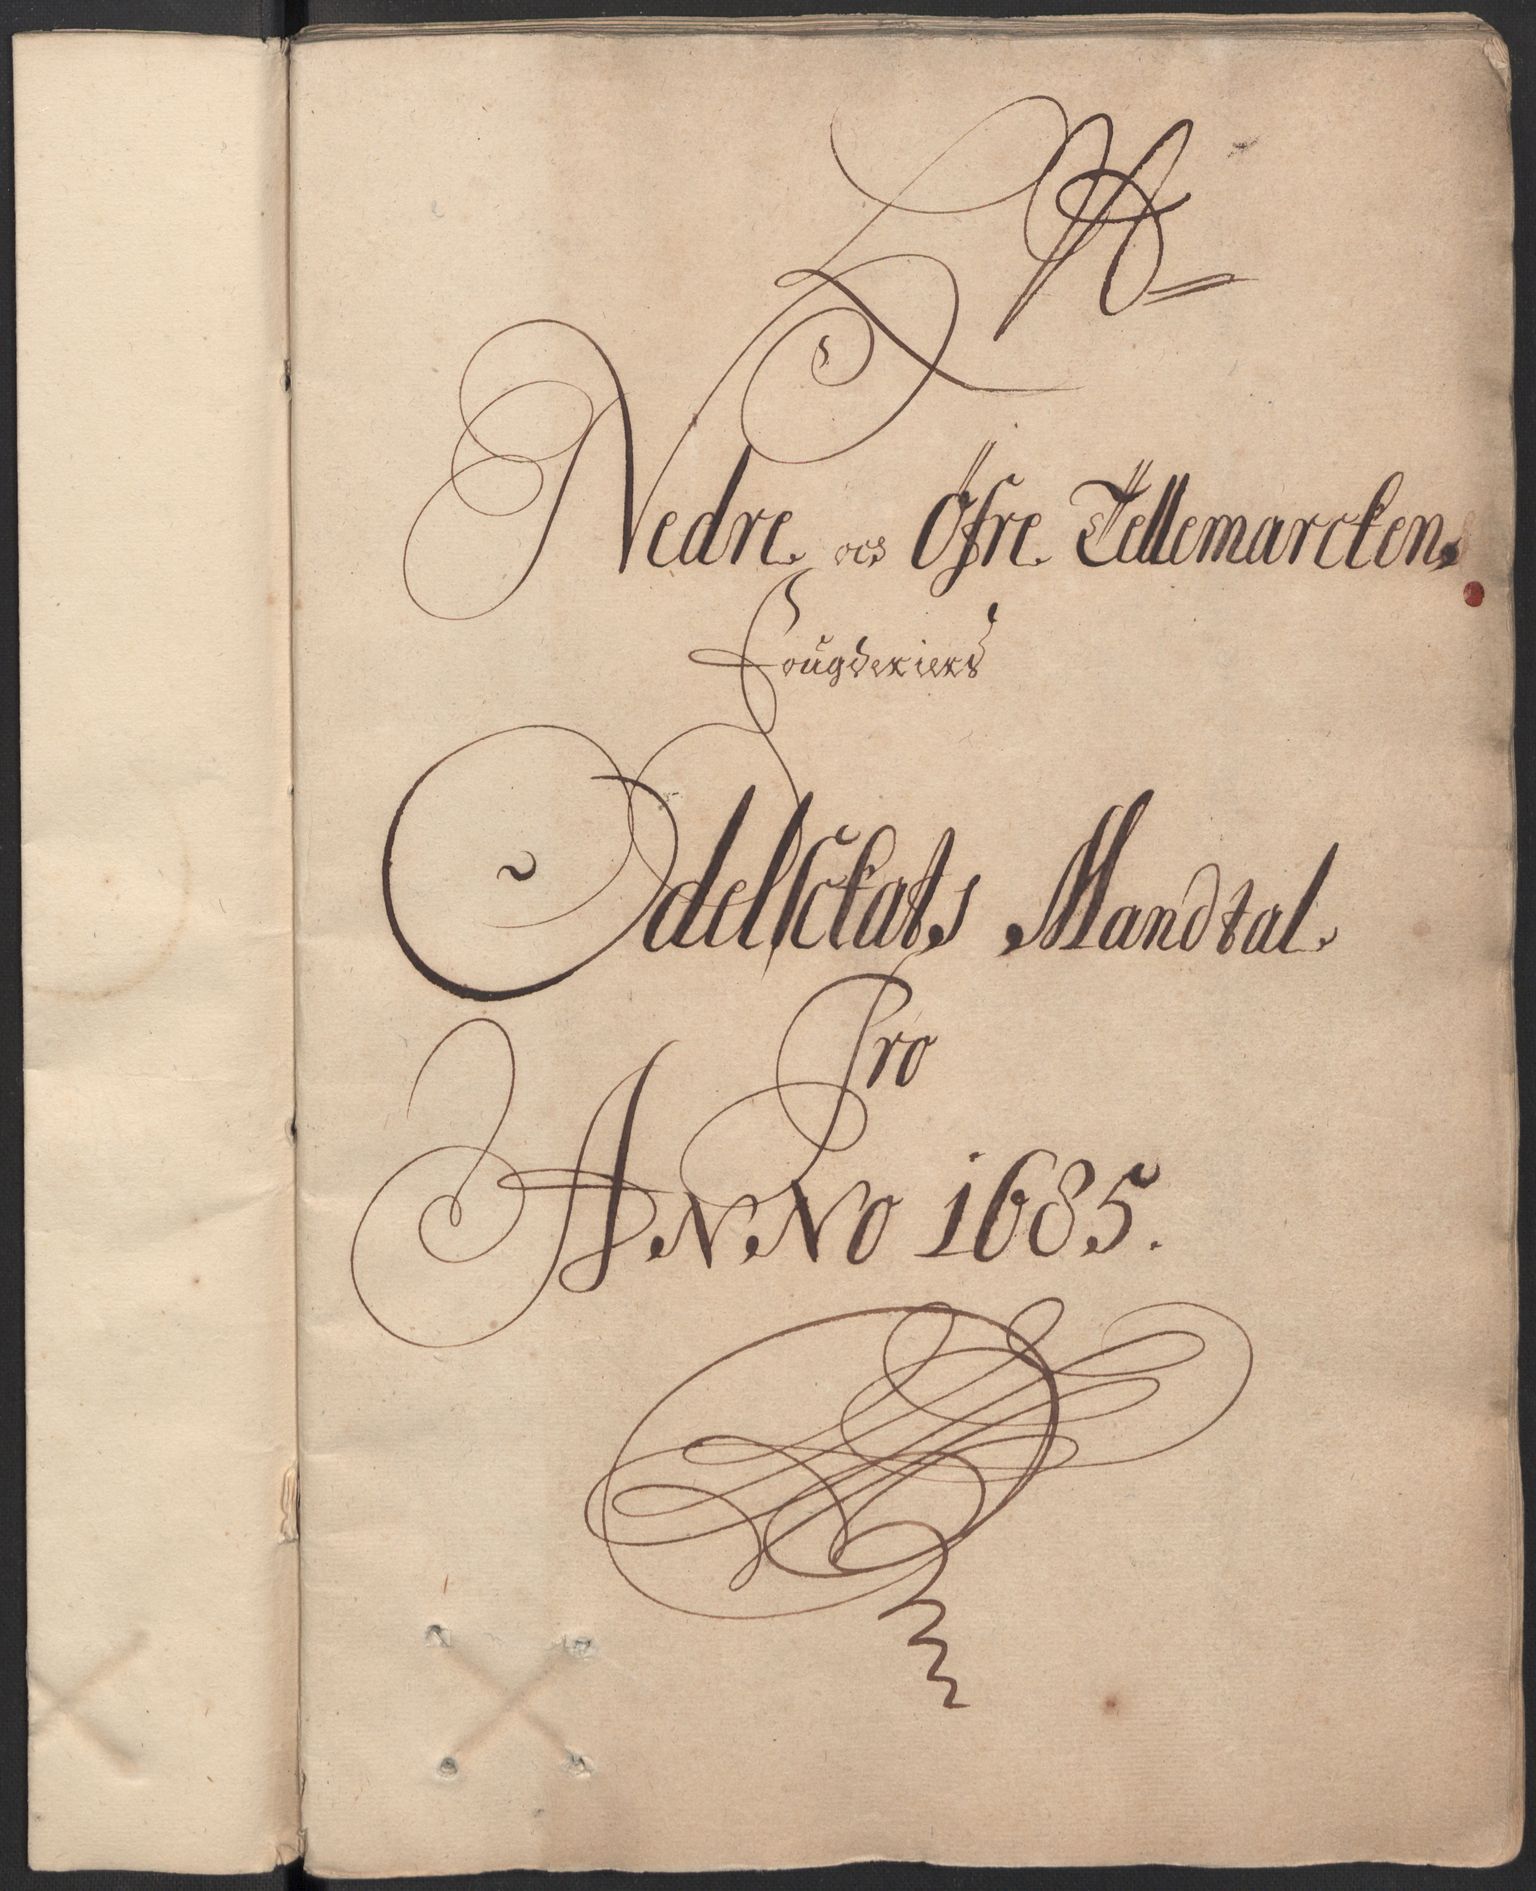 Nedre och Öfre Tellemarckens
Fougderiers
Odelsckats Mandtal
Pro
ANNO 1685.